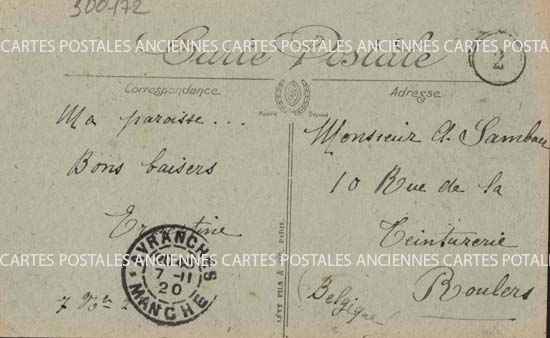 300172
Carte Postale
2
CARTES POSTALES ANCIENNES CARTES POSTALES ANCIENNES CARTES POSTALES ANCIENNES CARTES POSTALES ANCIENNES
Correspondance
Modèle Déposé
Adresse
Ma paroisse...
Bons baisers
7 9bre 2
AVRANCHES
7-11
20
MANCHE
CARTES POSTALES ANCIENNES CARTES POSTALES ANCIENNES CARTES POSTALES ANCIENNES CARTES POSTALES ANCIENNES
LÉVY FILS & PARIS.
Monsieur A. Sambaer
10 Rue de la
Teinturerie
Roulers
(Belgique)